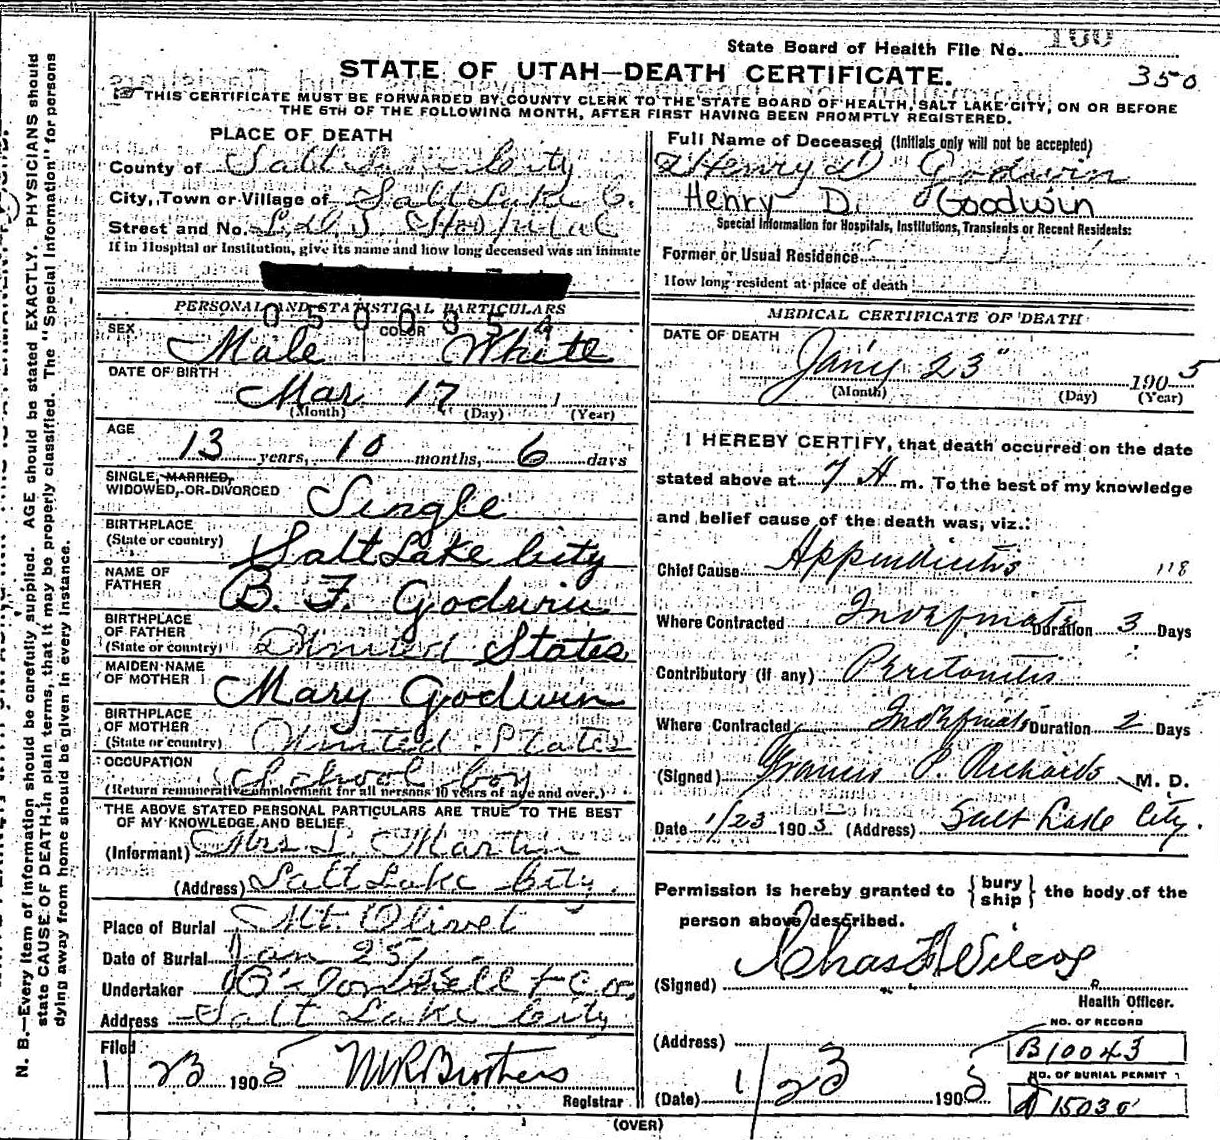 State Board of Health File No. 100
350
STATE OF UTAH—DEATH CERTIFICATE.
THIS CERTIFICATE MUST BE FORWARDED BY COUNTY CLERK TO THE STATE BOARD OF HEALTH, SALT LAKE CITY, ON OR BEFORE
THE 6TH OF THE FOLLOWING MONTH, AFTER FIRST HAVING BEEN PROMPTLY REGISTERED.
PLACE OF DEATH
County of Salt Lake City
City, Town or Village of Salt Lake C.
Street and No. L.D.S. Hospital
If in Hospital or Institution, give its name and how long deceased was an inmate
PERSONAL AND STATISTICAL PARTICULARS
0500035
SEX Male COLOR White
DATE OF BIRTH
Mar 17
(Month) (Day) (Year)
AGE
13 years, 10 months, 6 days
SINGLE, MARRIED,
WIDOWED, OR DIVORCED Single
BIRTHPLACE
(State or country) Salt Lake City
NAME OF
FATHER B. F. Godwin
BIRTHPLACE
OF FATHER
(State or country) United States
MAIDEN NAME
OF MOTHER Mary Godwin
BIRTHPLACE
OF MOTHER
(State or country) United States
OCCUPATION School boy
(Return remunerative employment for all persons 10 years of age and over.)
THE ABOVE STATED PERSONAL PARTICULARS ARE TRUE TO THE BEST
OF MY KNOWLEDGE AND BELIEF
(Informant) Mrs L. Martin
(Address) Salt Lake City.
Place of Burial Mt. Olivet
Date of Burial Jan 25
Undertaker
Address Salt Lake City
Filed
1 23 1905
Registrar
Full Name of Deceased (Initials only will not be accepted)
Henry D Godwin
Henry D. Goodwin
Special Information for Hospitals, Institutions, Transients or Recent Residents:
Former or Usual Residence
How long resident at place of death
MEDICAL CERTIFICATE OF DEATH
DATE OF DEATH
Jan'y 23" 1905
(Month) (Day) (Year)
I HEREBY CERTIFY, that death occurred on the date
stated above at 7 A m. To the best of my knowledge
and belief cause of the death was, viz.:
Chief Cause Appendicitis 118
Where Contracted Duration 3 Days
Contributory (if any) Peritonitis
Where Contracted Duration 2 Days
(Signed) Francis P. Richards M. D.
Date 1/23 1905 (Address) Salt Lake City.
Permission is hereby granted to {bury ship} the body of the
person above described.
(Signed) Chas F Wilcox
Health Officer.
(Address)
(Date) 1/23 1905
NO. OF RECORD
B10043
NO. OF BURIAL PERMIT
(OVER)
N. B.—Every item of information should be carefully supplied. AGE should be stated EXACTLY. PHYSICIANS should
state CAUSE OF DEATH in plain terms, that it may be properly classified. The "Special Information" for persons
dying away from home should be given in every instance.